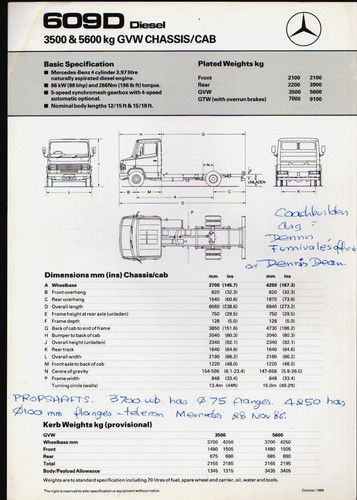 609D Diesel
3500 & 5600 kg GVW CHASSIS/CAB
Basic Specification
■ Mercedes-Benz 4 cylinder 3.97 litre
naturally aspirated diesel engine.
■ 66 kW (88 bhp) and 266Nm (196 lb ft) torque.
■ 5-speed synchromesh gearbox with 4-speed
automatic optional.
■ Nominal body lengths 12/15 ft & 15/18 ft.
Plated Weights kg
Front 2100 2100
Rear 2200 3900
GVW 3500 5600
GTW (with overrun brakes) 7000 9100
UNLADEN
Coachbuilders
drg -
Dennis
Furnivale's office
or Dennis Dean.
Dimensions mm (ins) Chassis/cab
mm ins mm ins
A Wheelbase 3700 (145.7) 4250 (167.3)
B Front overhang 820 (32.3) 820 (32.3)
C Rear overhang 1540 (60.6) 1870 (73.6)
D Overall length 6060 (238.6) 6940 (273.2)
E Frame height at rear axle (unladen) 750 (29.5) 750 (29.5)
F Frame depth 128 (5.0) 128 (5.0)
G Back of cab to end of frame 3850 (151.6) 4730 (186.2)
H Bumper to back of cab 2040 (80.3) 2040 (80.3)
J Overall height (unladen) 2340 (92.1) 2340 (92.1)
K Rear track 1640 (64.6) 1640 (64.6)
L Overall width 2190 (86.2) 2190 (86.2)
M Front axle to back of cab 1220 (48.0) 1220 (48.0)
N Centre of gravity 154-595 (6.1-23.4) 147-658 (5.8-26.0)
P Frame width 848 (33.4) 848 (33.4)
Turning circle (walls) 13.4m (44ft) 15.0m (49.2ft)
PROPSHAFTS. 3700 wb. has Ø 75 flanges. 4250 has
Ø100 mm flanges - telecon Mercedes 28 Nov 86.
Kerb Weights kg (provisional)
GVW 3500 5600
Wheelbase mm 3700 4250 3700 4250
Front 1480 1505 1480 1505
Rear 675 680 685 690
Total 2155 2185 2165 2195
Body/Payload Allowance 1345 1315 3435 3405
Weights are to standard specification including 70 litres of fuel, spare wheel and carrier, oil, water and tools.
The right is reserved to alter specification or equipment without notice
October 1986